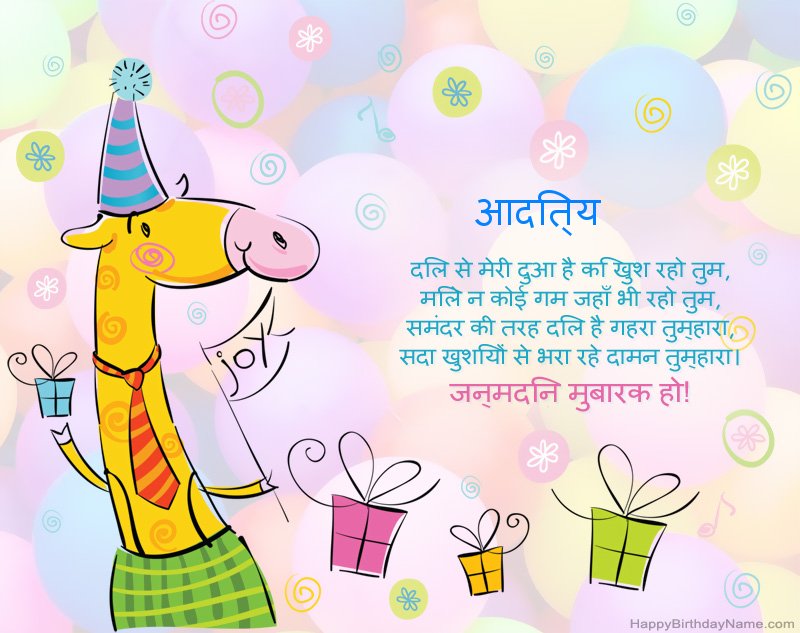 आदित्य
दिल से मेरी दुआ है कि खुश रहो तुम,
मिले न कोई गम जहाँ भी रहो तुम,
समंदर की तरह दिल है गहरा तुम्हारा,
सदा खुशियों से भरा रहे दामन तुम्हारा।
जन्मदिन मुबारक हो!
joy
HappyBirthdayName.com